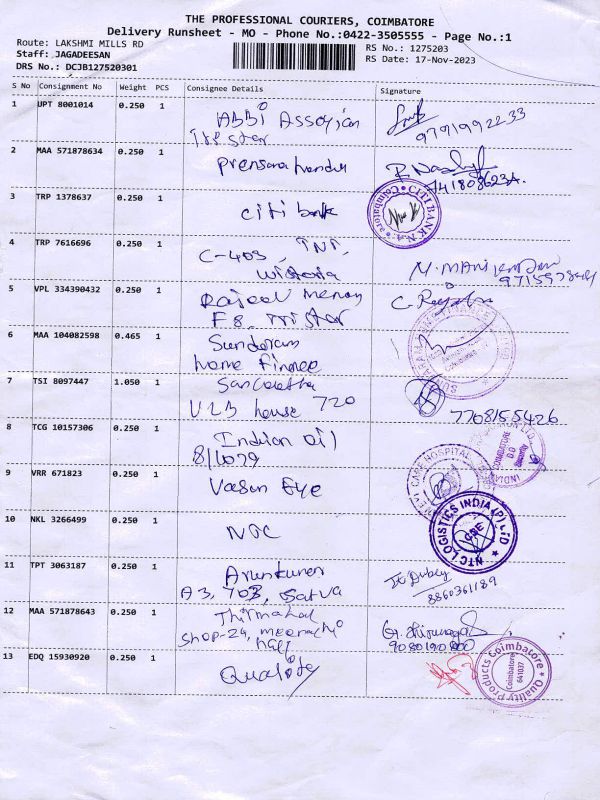 THE PROFESSIONAL COURIERS, COIMBATORE
Delivery Runsheet - MO - Phone No.:0422-3505555 - Page No.:1
Route: LAKSHMI MILLS RD
Staff: JAGADEESAN
DRS No.: DCJB127520301
RS No.: 1275203
RS Date: 17-Nov-2023
S No Consignment No Weight PCS Consignee Details Signature
1 UPT 8001014 0.250 1 ABBi Assoyian
2 MAA 571878634 0.250 1
3 TRP 1378637 0.250 1 citi bank
CITI BANK N.A. Coimbatore
4 TRP 7616696 0.250 1 C-403, TNT,
5 VPL 334390432 0.250 1 Rajeev Menon
F8, Tristar
6 MAA 104082598 0.465 1 Sundaram
home Finnce
7 TSI 8097447 1.050 1 Sangeetha
VLB house 720
7708155426
8 TCG 10157306 0.250 1 Indian oil
8/1079
COIMBATORE
9 VRR 671823 0.250 1 Vasan Eye
EYE CARE HOSPITAL
10 NKL 3266499 0.250 1 NTC
NTC LOGISTICS INDIA (P) LTD
CBE
11 TPT 3063187 0.250 1 Arunkumar
A3, 703, Satva
8860361189
12 MAA 571878643 0.250 1 Thirmahal
Shop-24, meenachi
Hall
13 EDQ 15930920 0.250 1 Quality
Quality Products Coimbatore
Coimbatore
641037